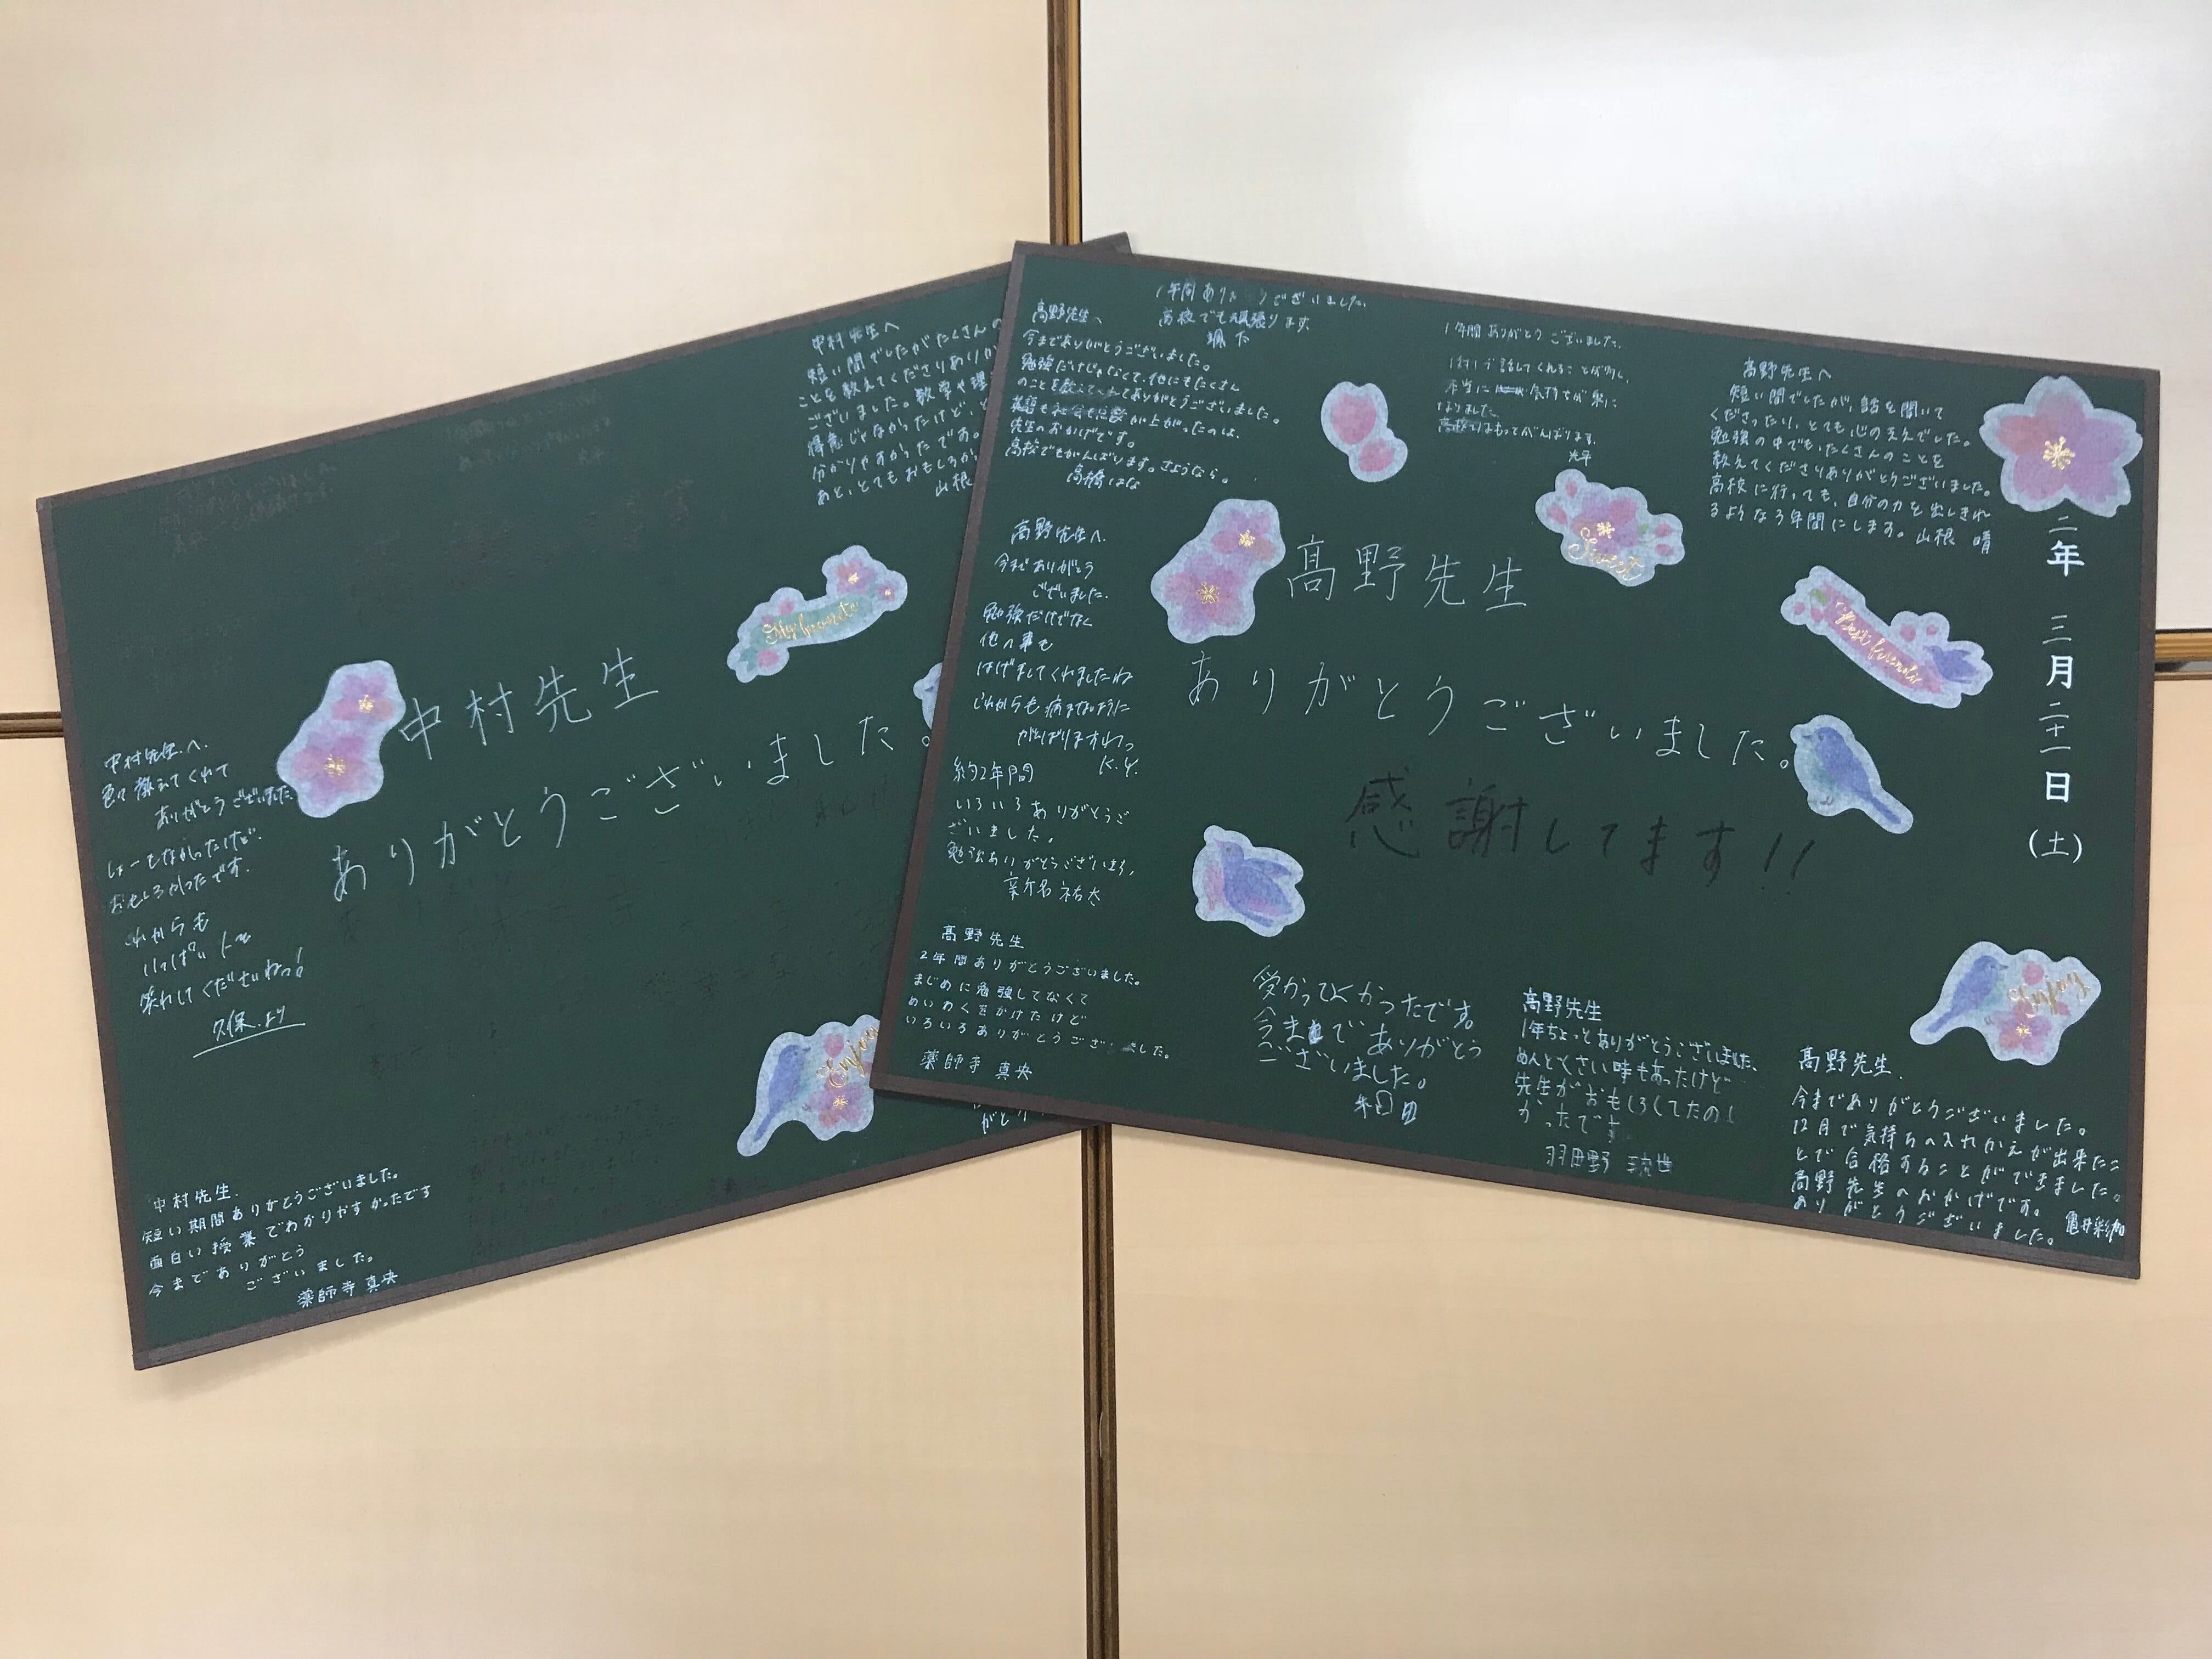 中村先生へ
短い間でしたがたくさんの
ことを教えてくださりありが
ございました。数学や理
得意じゃなかったけど、と
分かりやすかったです。
あと、とてもおもしろか
山根
My favorite
中村先生
ありがとうございました。
中村先生へ.
色々教えてくれて
ありがとうございました.
しょーもなかったけど.
おもしろかったです.
これからも
いっぱい
笑わしてくださいねっ!
久保.より
Enjoy
がとう
中村先生.
短い期間ありがとうございました。
面白い授業でわかりやすかったです
今までありがとう
ございました。
薬師寺 真央
1年間ありがとうございました。
高校でも頑張ります.
颯太
高野先生へ
今までありがとうございました。
勉強だけじゃなくて、他にもたくさん
のことを教えてくれてありがとうございました。
が上がったのは、
先生のおかげです。
高校でもがんばります。さようなら。
高橋はな
1年間ありがとうございました.
話してくれることが多く、
本当に 気持ちが楽に
なりました
がんばります.
光平
高野先生へ
短い間でしたが、話を聞いて
くださったり、とても心の支えでした。
勉強の中でも、たくさんのことを
教えてくださりありがとうございました。
高校に行っても、自分の力を出しきれ
るような3年間にします。山根 晴
二年 三月二十一日(土)
Sweet
Best friends
高野先生へ.
今までありがとう
ございました.
勉強だけでなく
他の事も
はげましてくれましたね
これからも病まないように
がんばりますねっ
K.Y.
髙野先生
ありがとうございました。
感謝してます!!
約2年間
いろいろありがとうご
ざいました。
勉強ありがとうございます,
髙野先生
2年間ありがとうございました。
まじめに勉強してなくて
めいわくをかけたけど
いろいろありがとうございました。
薬師寺 真央
受かってよかったです。
今までありがとう
ございました。
髙野先生
1年ちょっとありがとうございました、
めんどくさい時もあったけど
先生がおもしろくてたのし
かったです
羽田野 琉世
Enjoy
髙野先生.
今までありがとうございました。
12月で気持ちの入れかえが出来たこ
とで合格することができました。
髙野先生のおかげです。
ありがとうございました。 亀井彩加